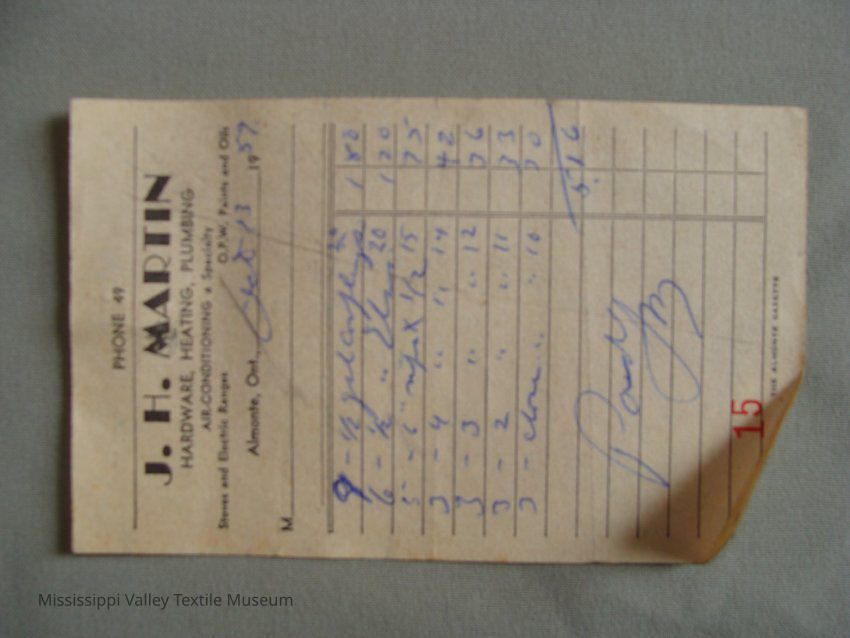 PHONE 49
J. H. MARTIN
HARDWARE, HEATING, PLUMBING
AIR-CONDITIONING a Specialty
Stoves and Electric Ranges O.P.W. Paints and Oils
Almonte, Ont., Oct 13 1957
M
9 - 1/2 galv 20 1 80
6 - 1/2 " Elbows 20 1 20
5 - 6" nip x 1/2 15 75
3 - 4 " " 14 42
3 - 3 " " 12 36
3 - 2 " " 11 33
3 - close " " 10 30
5.16
Paid
JM
15
THE ALMONTE GAZETTE
Mississippi Valley Textile Museum